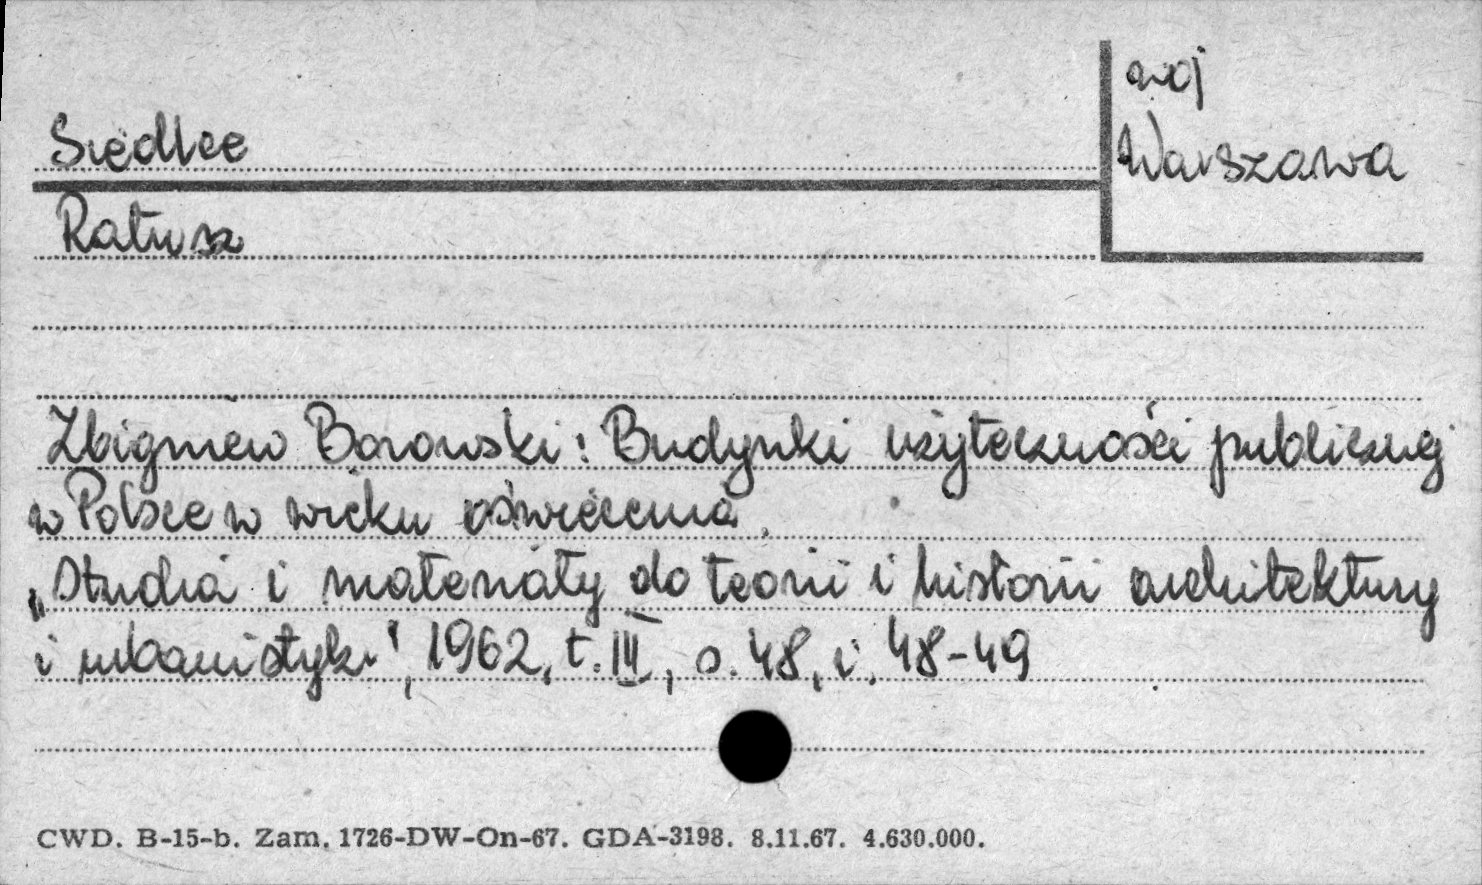 woj
Warszawa
Siedlce
Ratusz
Zbigniew Borowski: Budynki użyteczności publicznej
w Polsce w wieku oświecenia.
„Studia i materiały do teorii i historii architektury
i urbanistyki", 1962, t. III, s. 48, i. 48-49
CWD. B-15-b. Zam. 1726-DW-On-67. GDA-3198. 8.11.67. 4.630.000.